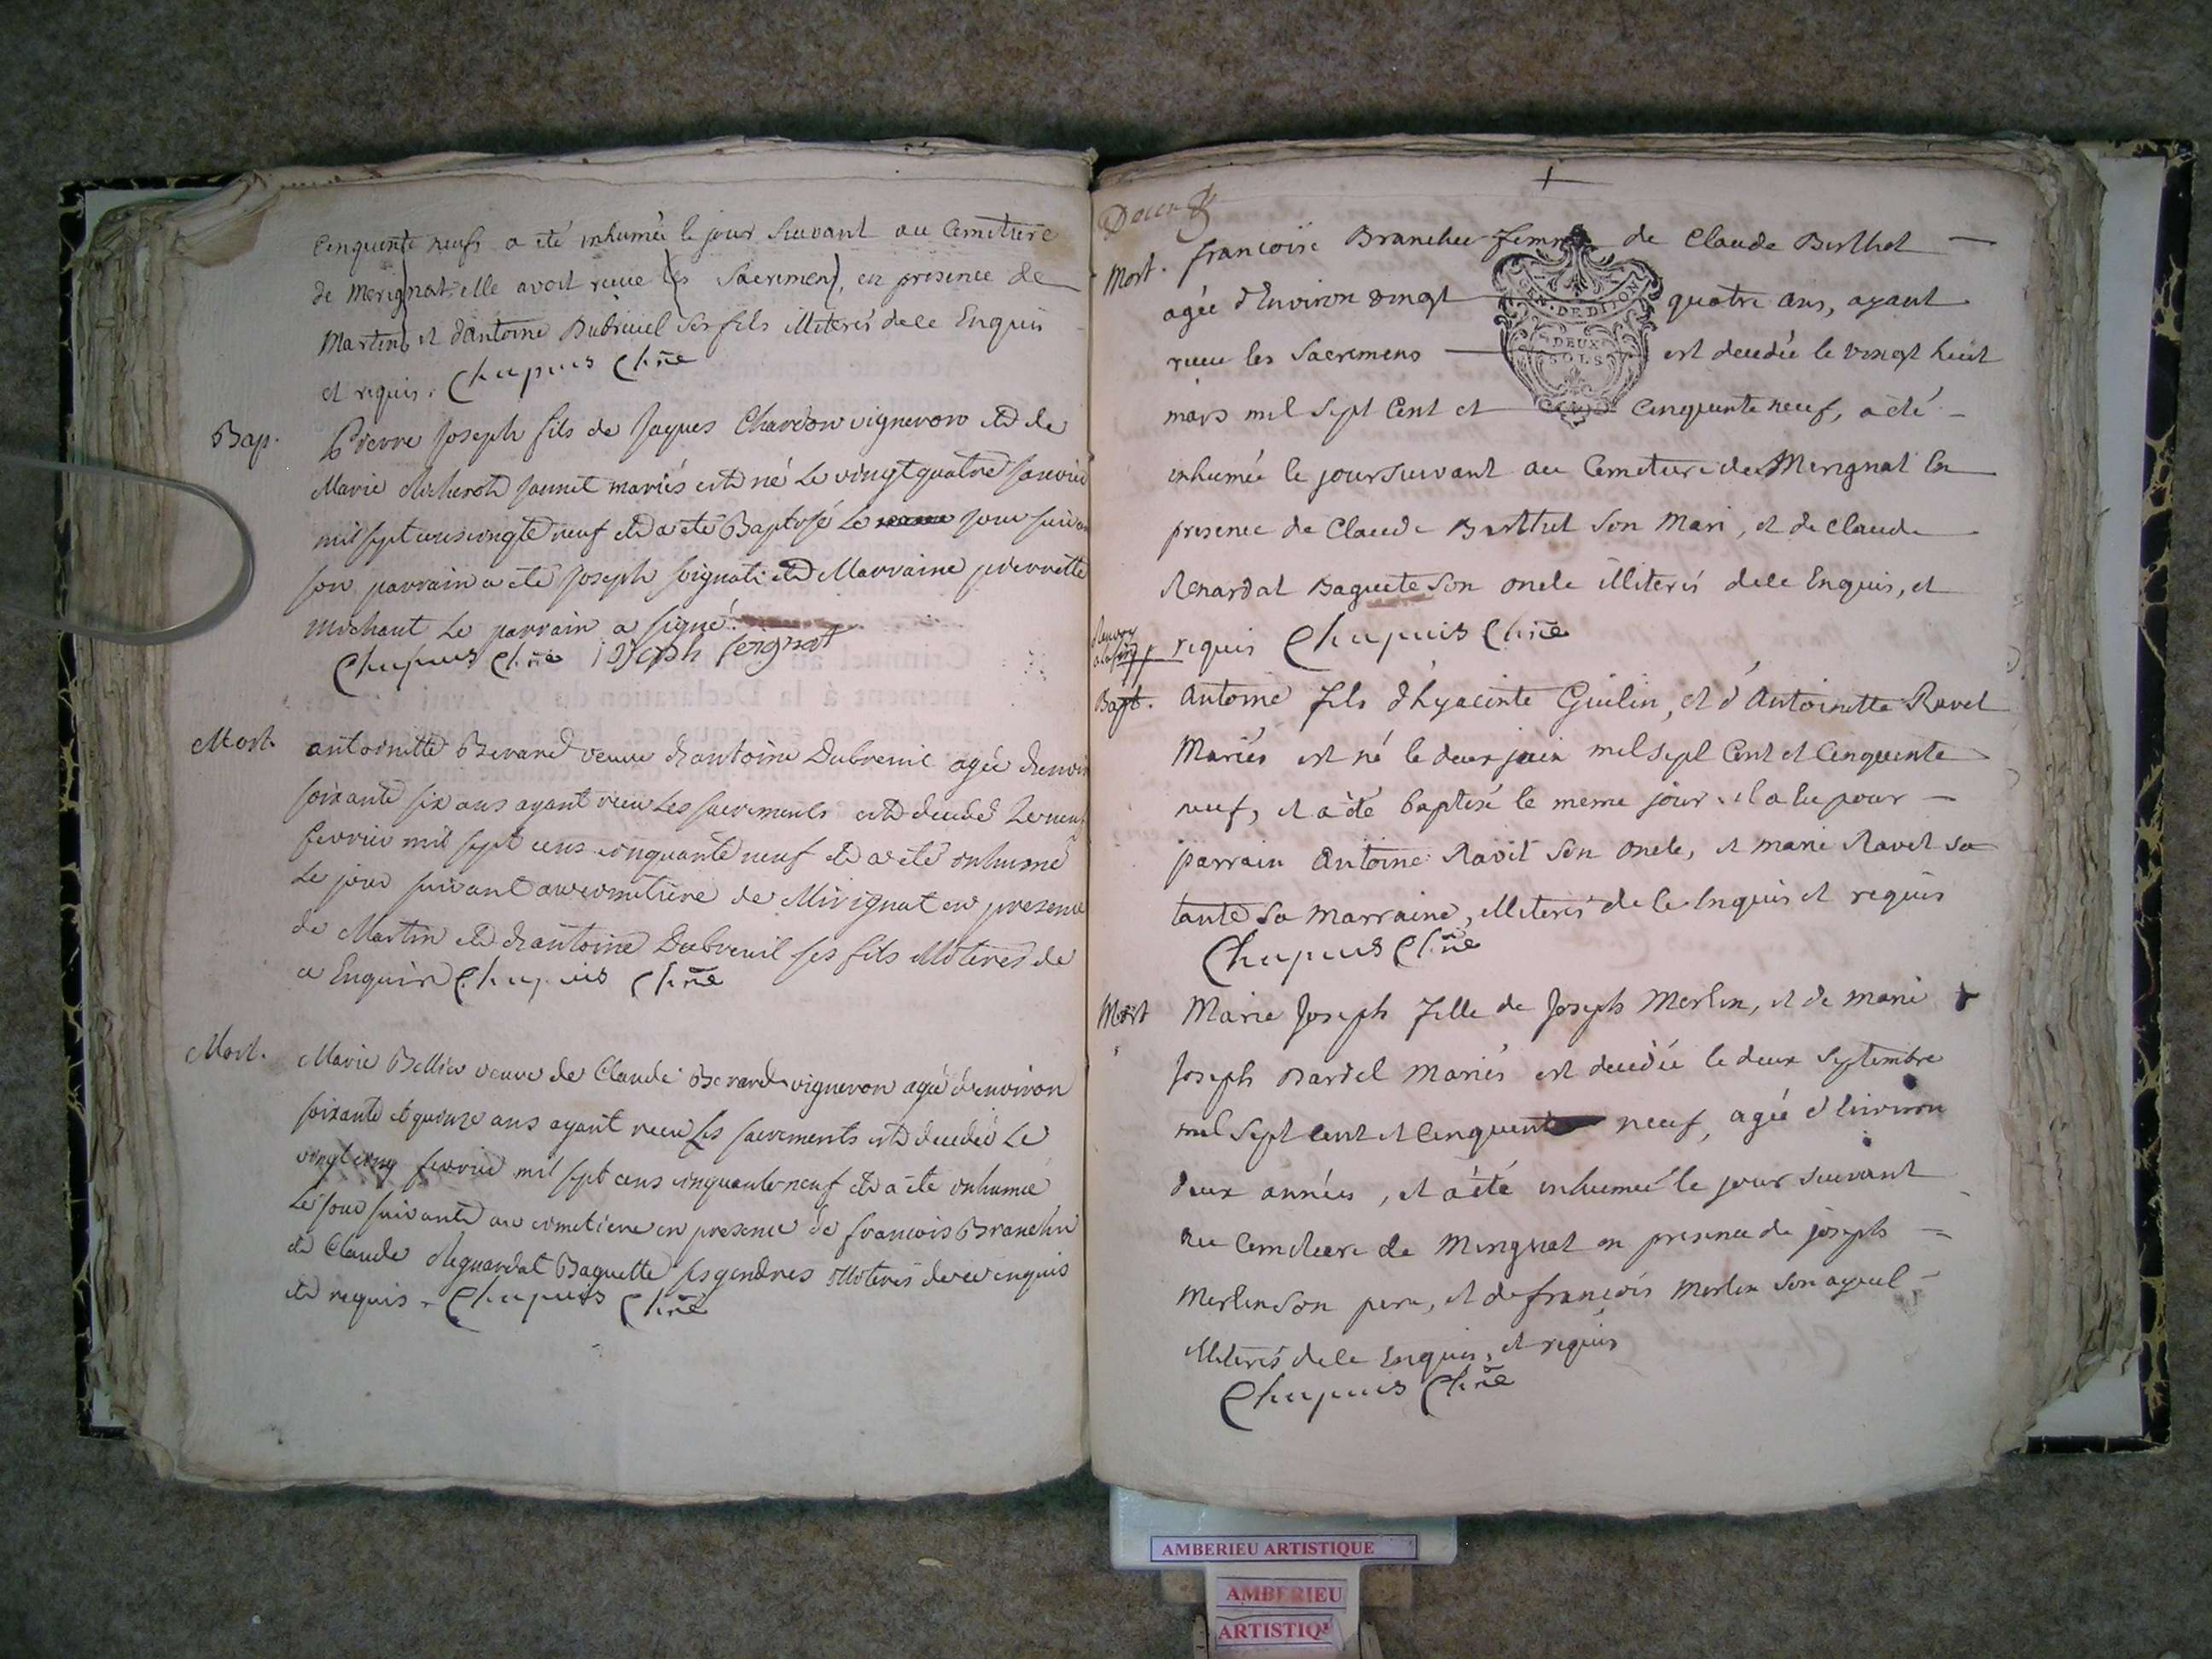 Cenquente neufs a eté inhumée le jour Suivant au Cemetiere
de Merignat, elle avoit recue les Sacremens, en presence de
Martin et d'antoine Dubreuil Ses fils illiterés dele Enquis
et requis. Chapuis Curé
Bap. Pierre Joseph fils de Jaques Chardon vigneron et de
Marie Jannet mariés est né Le vingt quatre Janvier
mil sept cens neuf et a été Baptisé Le jour suivan
son parrain a été Joseph soignat et Marraine pierrette
michaut Le parrain a signé.
Chapuis Curé Joseph seignat
Mort. antoinette Berard veuve d'antoine Dubreuil agée denviron
soixante six ans ayant recu Les sacrements est decedé Le neuf
fevrier mil sept cens cinquante neuf et a été inhumé
Le jour suivant au cemitiere de Mirignat en presence
de Martin et d'antoine Dubreuil ses fils illiteres de
ce Enquis Chapuis Curé
Mort. Marie Bellier veuve de Claude Berard vigneron agée denviron
soixante et quinze ans ayant receu Les sacrements est decedée Le
vingt cinq fevrier mil sept cens cinquante neuf et a été inhumée
Le jour suivant au cemetiere en presence de francois Branchu
et Claude Baguette ses gendres illiteres de ce enquis
et requis. Chapuis Curé
Mort. francoise Branchu femme de Claude Berthet
agée d'Environ vingt quatre ans, ayant
GEN. DE DIJON
DEUX
SOLS
recue les Sacremens est decedée le vingt huit
mars mil Sept Cent et Cenquente neuf, a eté
inhumée le jour suivant au Cemetiere de Merignat En
presence de Claude Berthet Son Mari, et de Claude
Renardat Baguete Son oncle illiterés dele Enquis, et
requis Chapuis Curé
Bapt. Antoine fils d'hyacinte Guilin, et d'Antoinette Ravet
Mariés est né le deux juin mil Sept Cent et Cenquente
neuf, et a été baptisé le meme jour. il a eu pour
parrain Antoine Ravet Son oncle, et marie Ravet Sa
tante Sa marraine, illiterés de ce Enquis et requis
Chapuis Curé
Mort Marie Joseph fille de Joseph Merlin, et de marie
Joseph Bardel Mariés est decedée le deux Septembre
mil Sept Cent et Cenquente neuf, agée d'Environ
deux années, et a été inhumée le jour Suivant
au Cemetiere de Merignat en presence de joseph
Merlin Son pere, et de françois Merlin Son ayeul
illiterés dele Enquis, et requis
Chapuis Curé
AMBERIEU ARTISTIQUE
AMBERIEU
ARTISTIQU